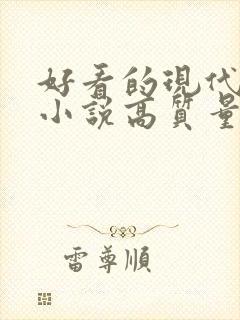 好看的現代
小說高質量
雷尊順